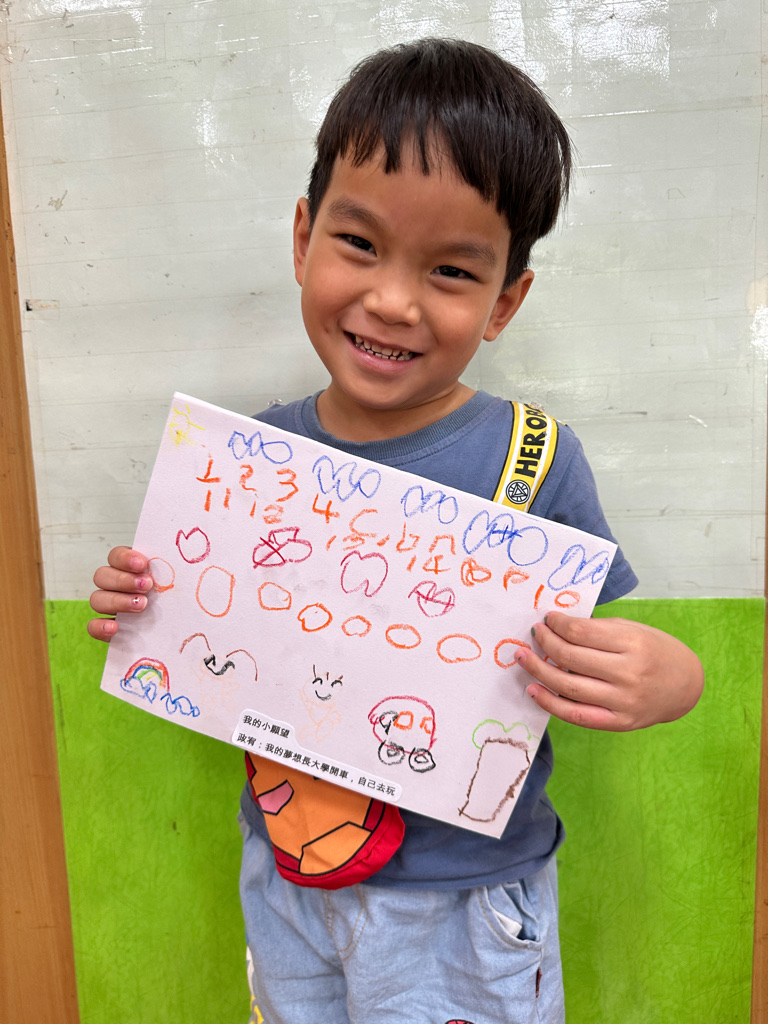 HERO
1 2 3 4
8
10
11 12
14
我的小願望
政宥：我的夢想長大學開車，自己去玩